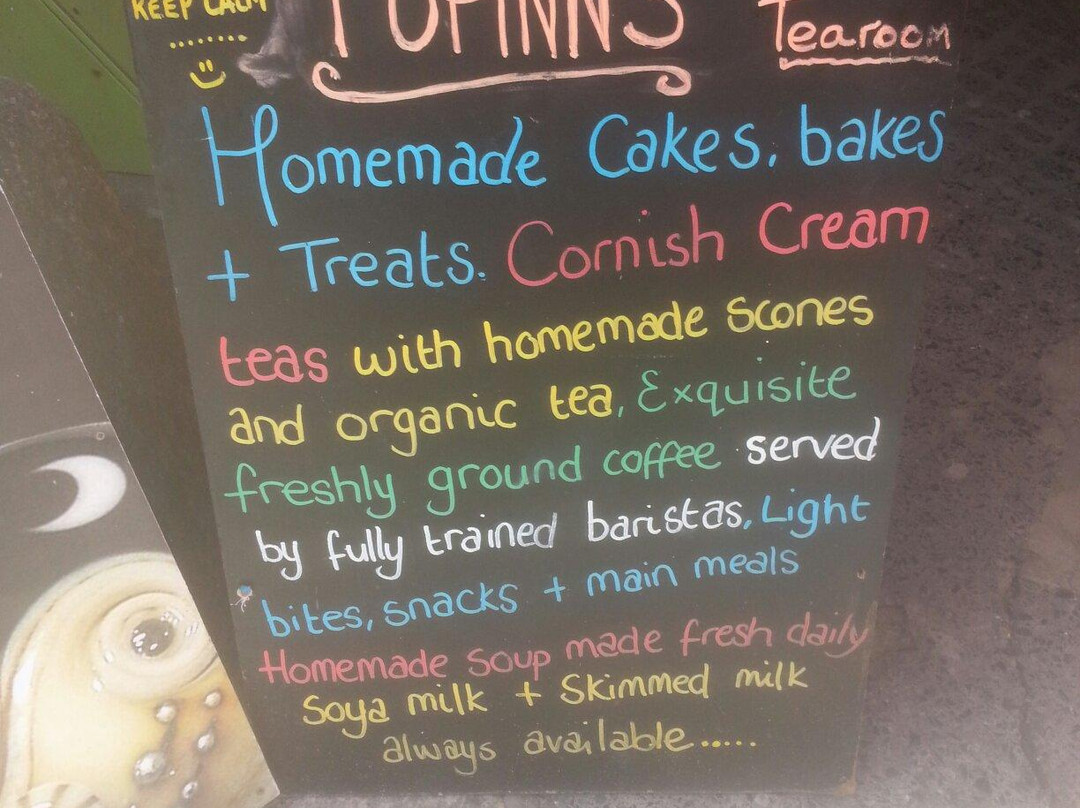 KEEP CALM
........
POPINNS
Tearoom
Homemade Cakes, bakes
+ Treats. Cornish Cream
teas with homemade Scones
and organic tea, Exquisite
freshly ground coffee served
by fully trained baristas, Light
bites, snacks + main meals
Homemade soup made fresh daily
Soya milk + Skimmed milk
always available......